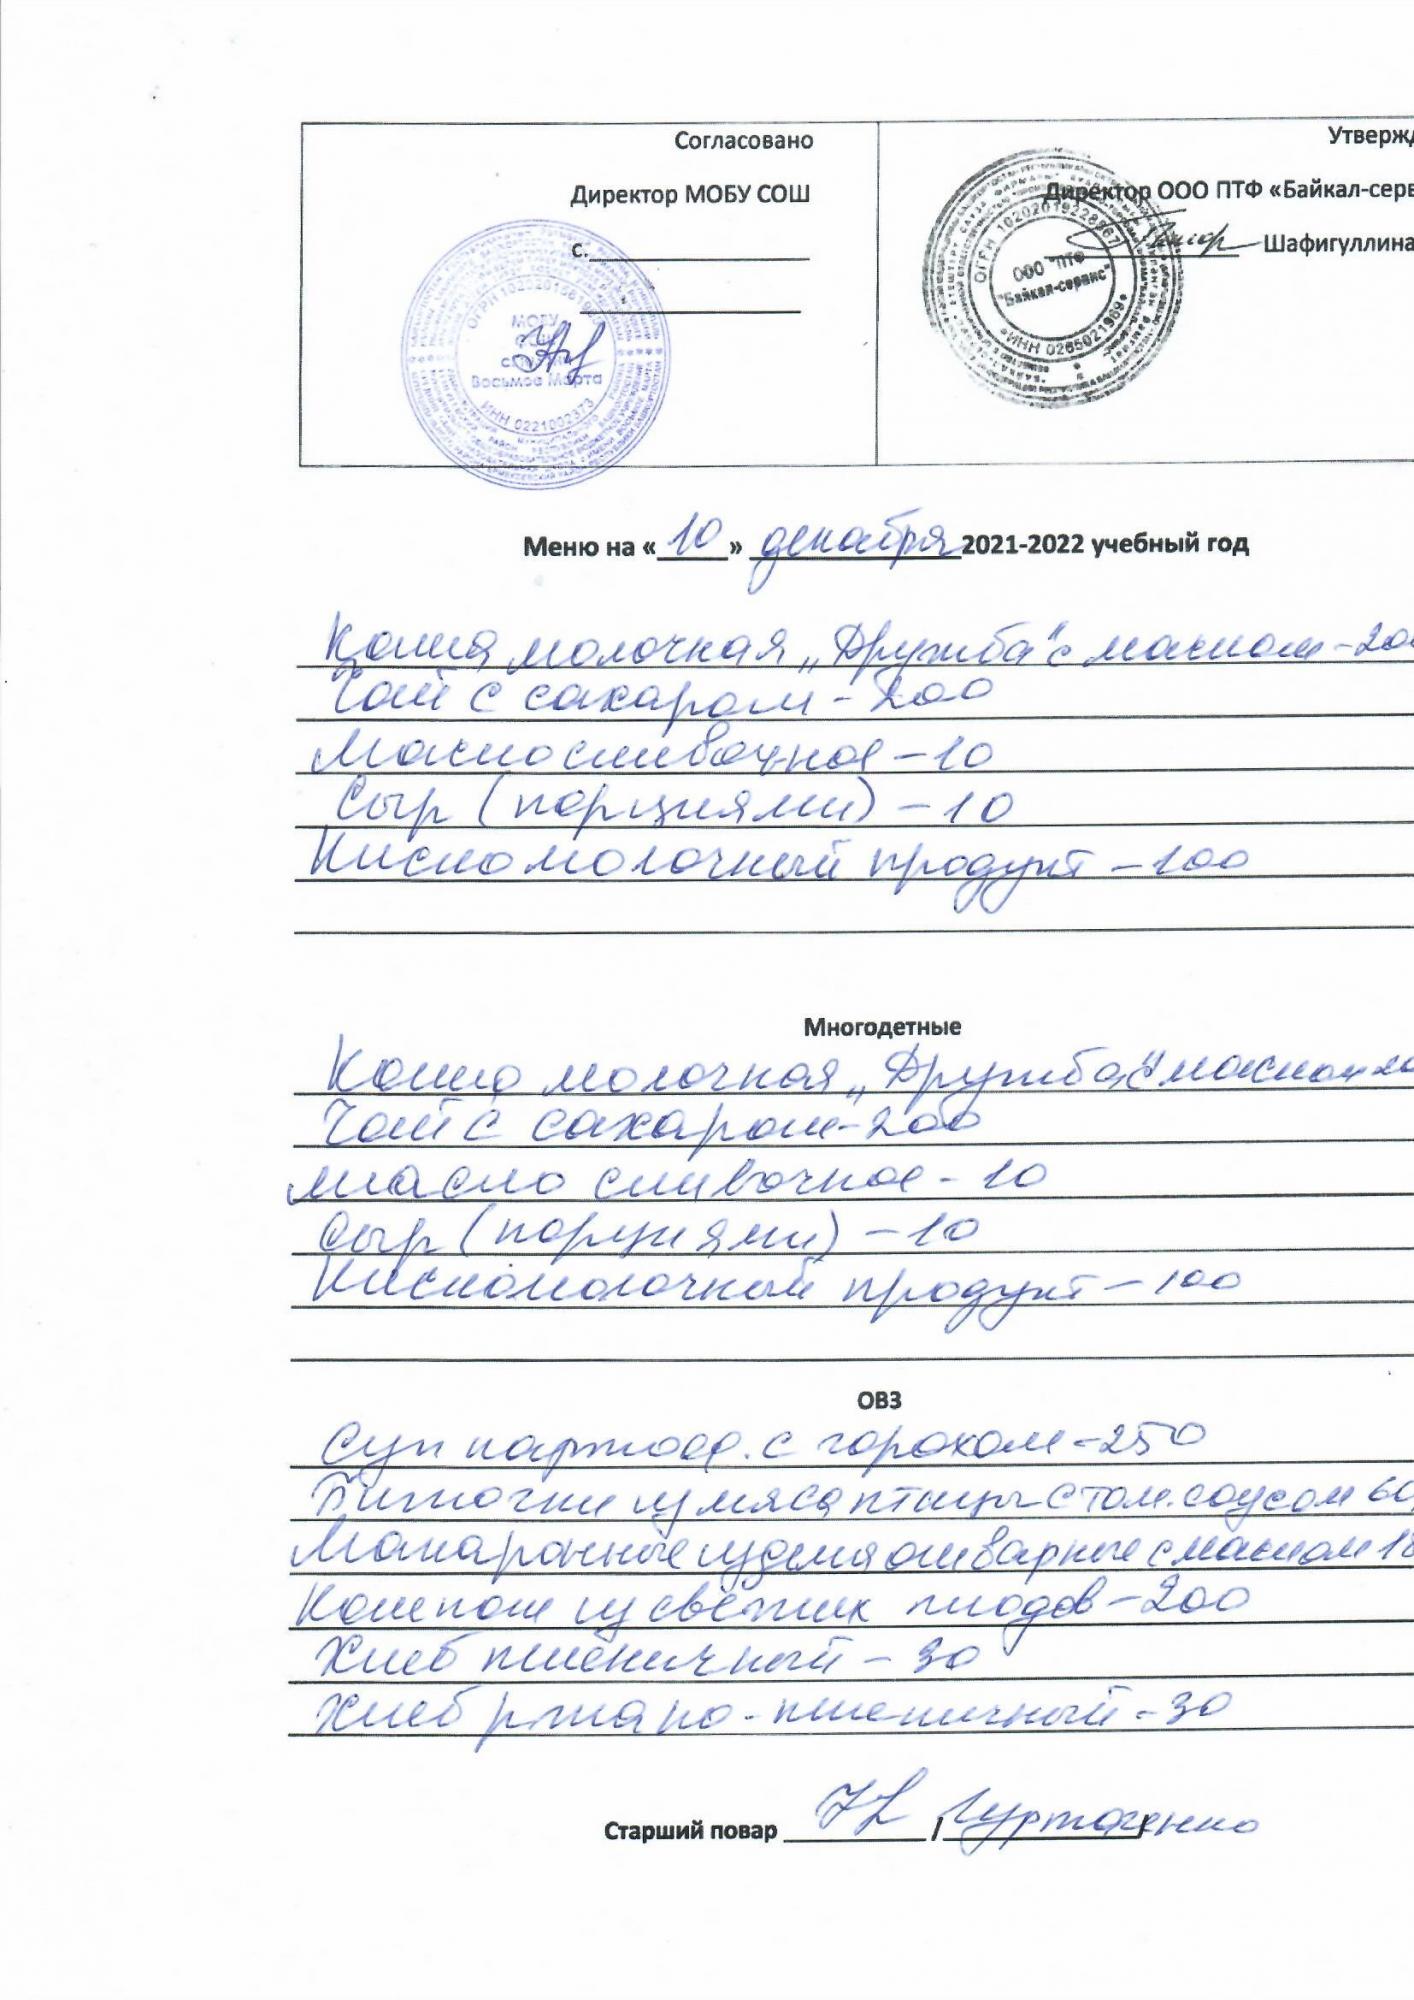 Согласовано
Директор МОБУ СОШ
с.
Утвержд
Директор ООО ПТФ «Байкал-серв
Шафигуллина
МОБУ
Восьмое Марта
ИНН 0221002373
ОГРН 1020201922896
ООО "ПТФ
"Байкал-сервис"
Меню на «10» декабря 2021-2022 учебный год
Каша молочная „Дружба" с маслом - 200
Чай с сахаром - 200
Масло сливочное - 10
Сыр (порциями) - 10
Кисломолочный продукт - 100
Многодетные
Каша молочная „Дружба" с маслом
Чай с сахаром - 200
Масло сливочное - 10
Сыр (порциями) - 10
Кисломолочный продукт - 100
ОВЗ
Суп картоф. с горохом - 250
Биточки из мяса птицы с том. соусом 60
Макаронные изделия отварные с маслом 18
Компот из свежих плодов - 200
Хлеб пшеничный - 30
Хлеб ржано-пшеничный - 30
Старший повар / /